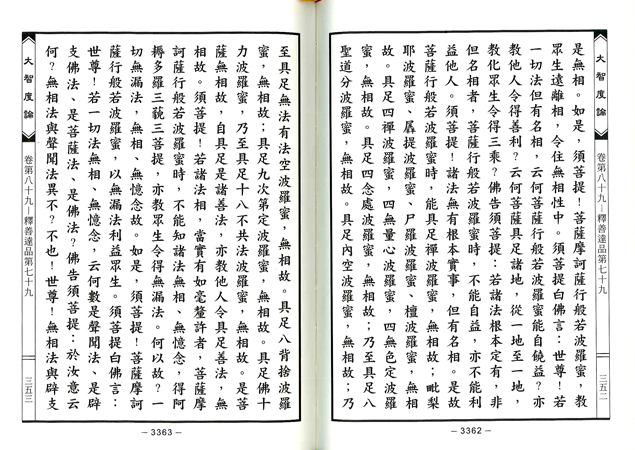 大智度論
卷第八十九─釋善達品第七十九
三五二
是無相。如是，須菩提！菩薩摩訶薩行般若波羅蜜，教
眾生遠離相，令住無相性中。須菩提白佛言：世尊！若
一切法但有名相，云何菩薩行般若波羅蜜能自饒益？亦
教他人令得善利？云何菩薩具足諸地，從一地至一地，
教化眾生令得三乘？佛告須菩提：若諸法根本定有，非
但名相者，菩薩行般若波羅蜜時，不能自益，亦不能利
益他人。須菩提！諸法無有根本實事，但有名相。是故
菩薩行般若波羅蜜時，能具足禪波羅蜜，無相故；毗梨
耶波羅蜜、羼提波羅蜜、尸羅波羅蜜、檀波羅蜜，無相
故。具足四禪波羅蜜，四無量心波羅蜜，四無色定波羅
蜜，無相故。具足四念處波羅蜜，無相故；乃至具足八
聖道分波羅蜜，無相故。具足內空波羅蜜，無相故；乃
─ 3362 ─
至具足無法有法空波羅蜜，無相故。具足八背捨波羅
蜜，無相故；具足九次第定波羅蜜，無相故。具足佛十
力波羅蜜，乃至具足十八不共法波羅蜜，無相故。是菩
薩無相故，自具足是諸善法，亦教他人令具足善法，無
相故。須菩提！若諸法相，當實有如毫釐許者，菩薩摩
訶薩行般若波羅蜜時，不能知諸法無相、無憶念，得阿
耨多羅三藐三菩提，亦教眾生令得無漏法。何以故？一
切無漏法，無相、無憶念故。如是，須菩提！菩薩摩訶
薩行般若波羅蜜，以無漏法利益眾生。須菩提白佛言：
世尊！若一切法無相、無憶念，云何數是聲聞法、是辟
支佛法、是菩薩法、是佛法？佛告須菩提：於汝意云
何？無相法與聲聞法異不？不也！世尊！無相法與辟支
大智度論
卷第八十九─釋善達品第七十九
三五三
─ 3363 ─